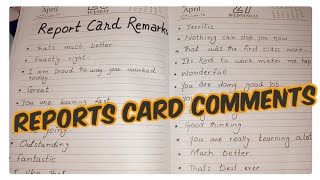 April
Report Card Remarks
Thats much better
Exactly right
I am proud the way you worked today
Great
You are learning fast
REPORTS CARD COMMENTS
going
Outstanding
Fantastic
April
WEDNESDAY
Terrific
Nothing can stop you now
That was the first class work
Its kind to work make me hap
Wonderfull
You are doing good job
Good thinking
You are really learning a lot
Much better
That's best ever